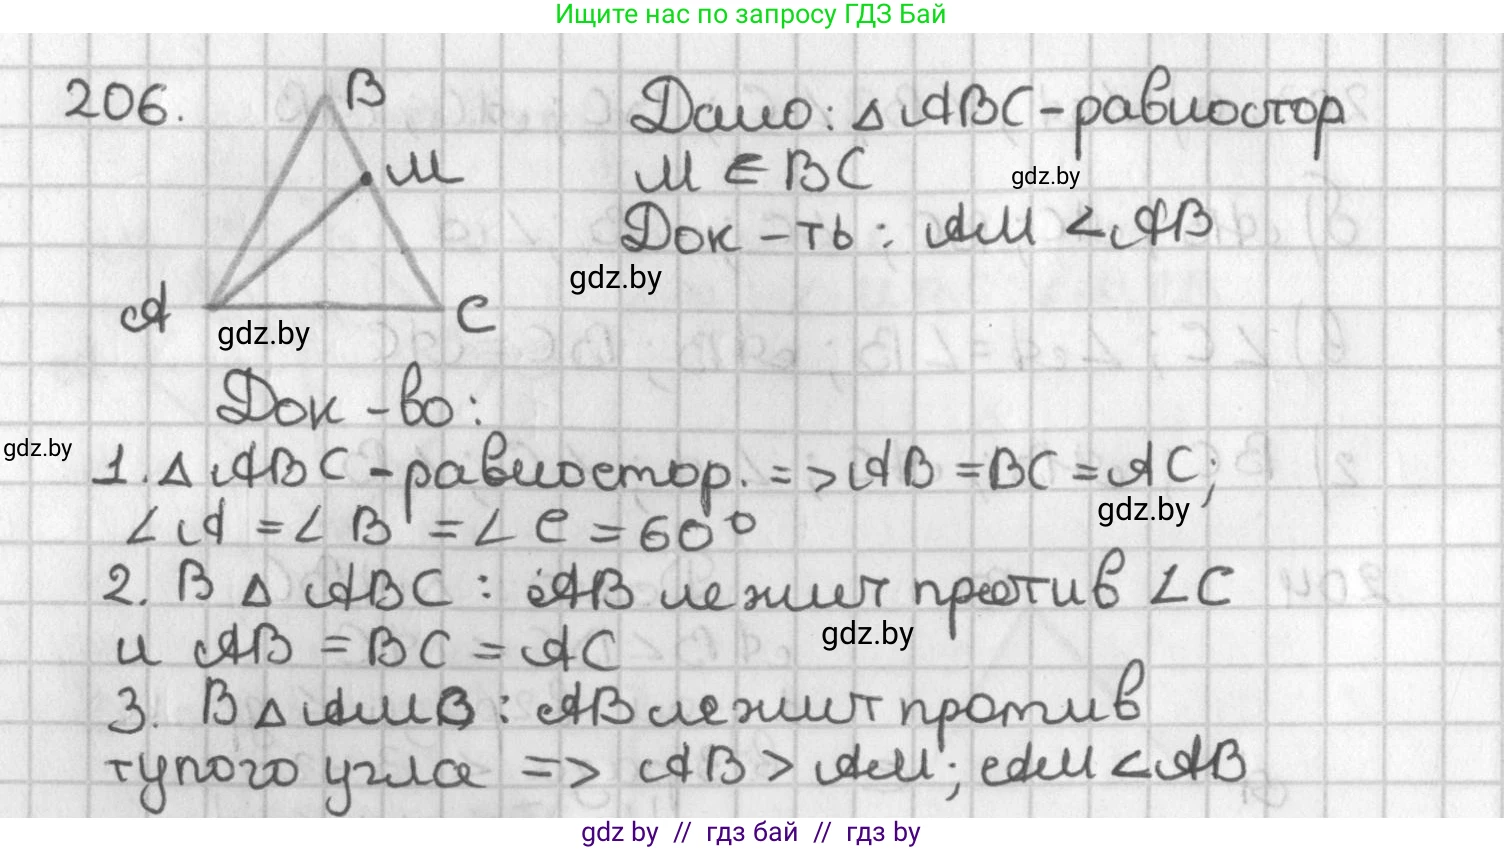 Ищите нас по запросу ГДЗ Бай
206.
B
M
A
C
Дано: △ ABC - равностор
M ∈ BC
gdz.by
Док - ть: AM < AB
gdz.by
gdz.by
Док - во:
gdz.by
1. △ ABC - равностор. => AB = BC = AC;
gdz.by
∠ A = ∠ B = ∠ C = 60°
2. В △ ABC : AB лежит против ∠C
gdz.by
и AB = BC = AC
3. В △ AMB : AB лежит против
тупого угла => AB > AM; AM < AB
gdz by // гдз бай // гдз by